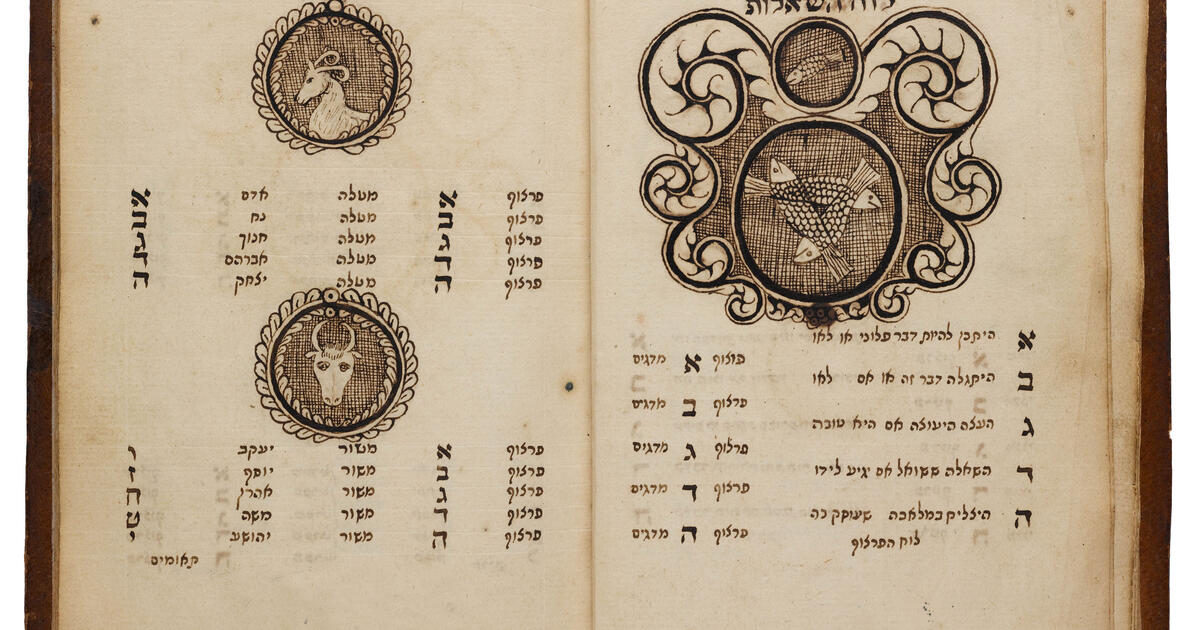 לוח השאלות
א היתכן להיות דבר פלוני או לאו
פרצוף א מדגים
ב היתגלה דבר זה או אם לאו
פרצוף ב מדגים
ג העצה היעוצה אם היא טובה
פרצוף ג מדגים
ד השאלה ששואל אם יגיע לידו
פרצוף ד מדגים
ה היצליח במלאכה שעוסק בה
פרצוף ה מדגים
לוח הפרצוף
פרצוף א מטלה אדם א
פרצוף ב מטלה נח ב
פרצוף ג מטלה חנוך ג
פרצוף ד מטלה אברהם ד
פרצוף ה מטלה יצחק ה
פרצוף א משור יעקב ו
פרצוף ב משור יוסף ז
פרצוף ג משור אהרן ח
פרצוף ד משור משה ט
פרצוף ה משור יהושע י
תאומים